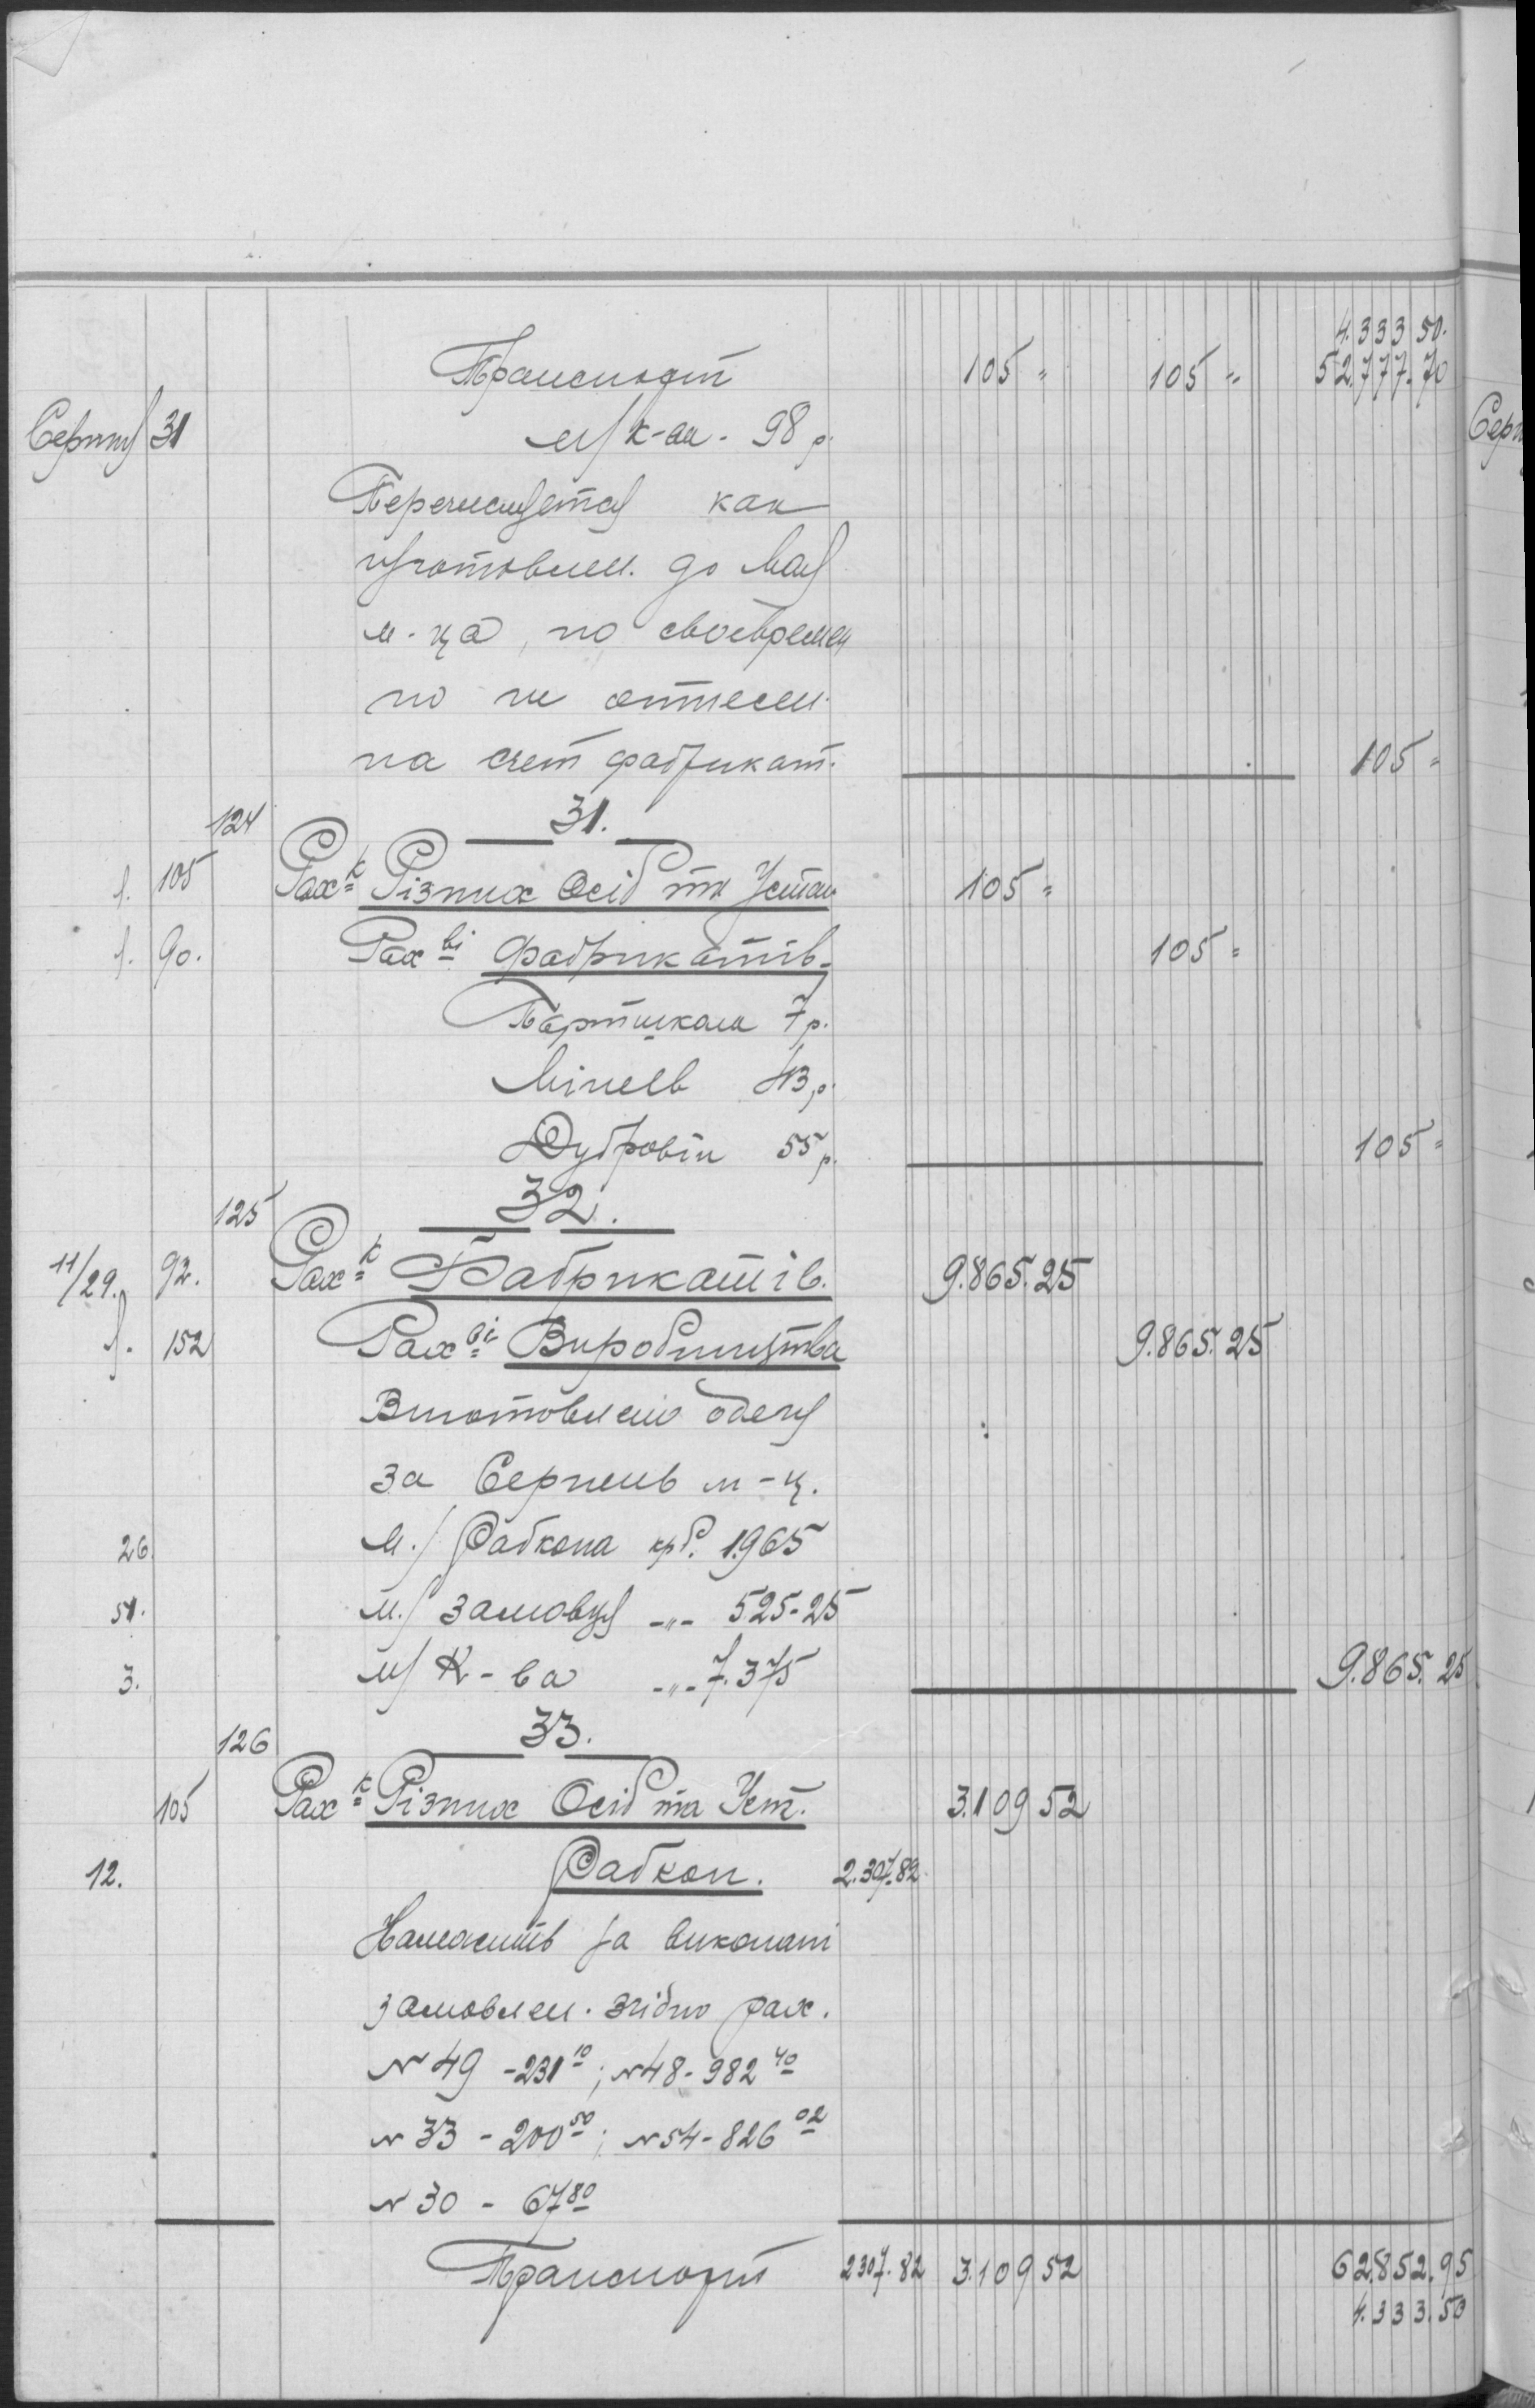 4.333 50.
Транспорт 105 = 105 = 52.777.70
Серпня 31 м/ к-ва - 98 р.
Перечисляется как
изготовлен. до Мая
м-ца, но своевремен
но не отнесен.
на счет фабрикат. 105 =
124 31.
105 Рах-к Різних Осіб та Устан 105 =
90. Рах-ві Фабрикатів 105 =
7 р.
Мінев 43 р.
Дубровін 55 р. 105 =
125 32.
11/29. 92. Рах-к Фабрикатів. 9.865.25
152 Рах-ві Виробництва 9.865.25
Виготовлено одягу
за Серпень м-ц.
26. м./ Рабкопа крб. 1.965
51. м./ замовця -"- 525-25
3. м/ К-ва -"- 7.375 9.865.25
126 33.
105 Рах-к Різних Осіб та Уст. 3.109 52
12. Рабкоп. 2.307.82
Належить за виконані
замовлен. згідно рах.
№ 49 - 231 10; № 48 - 982 40
№ 33 - 200 50; № 54 - 826 02
№ 30 - 67 80
Транспорт 2307.82 3.109 52 62.852.95
4.333.50